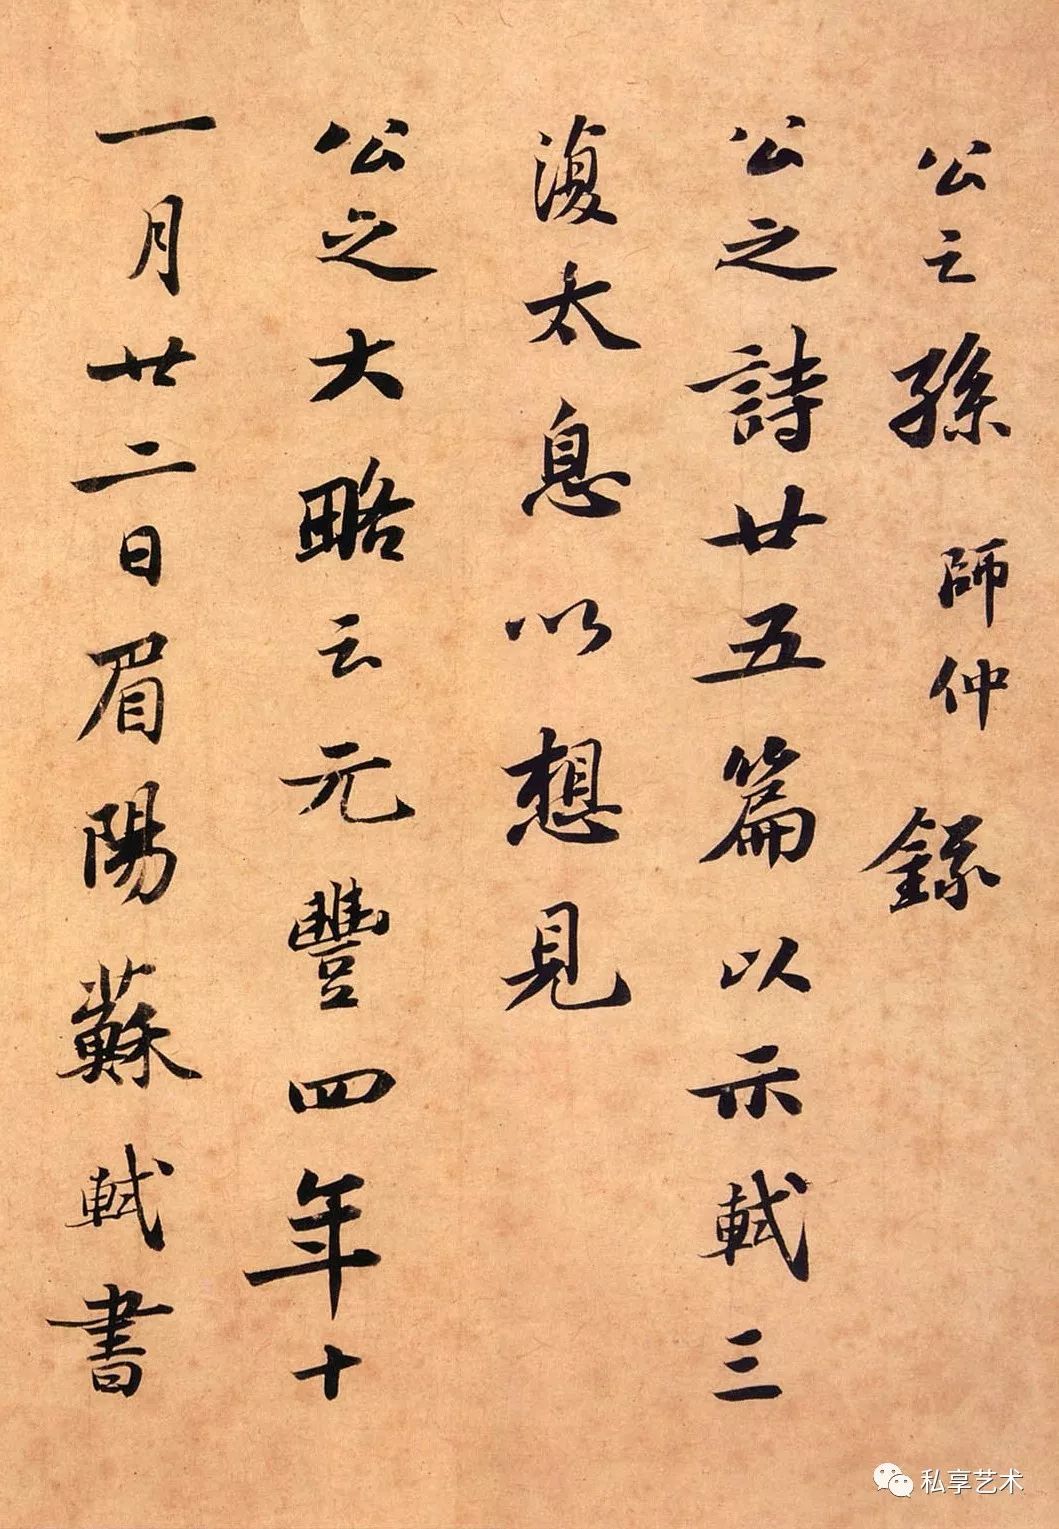 公之孫師仲錄
公之詩廿五篇以示軾三
復太息以想見
公之大略云元豐四年十
一月廿二日眉陽蘇軾書
私享艺术